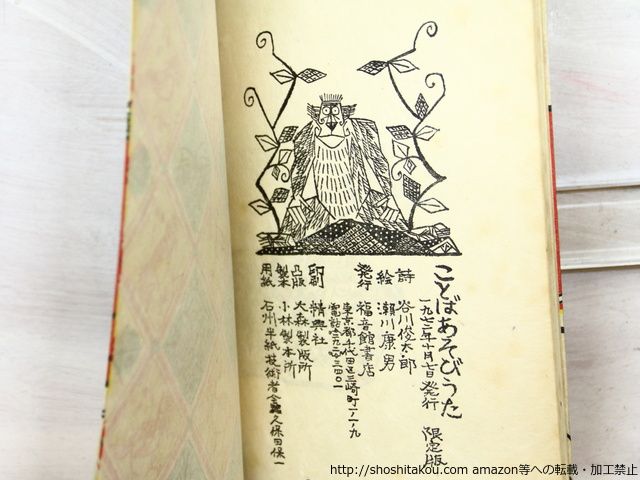 ことばあそびうた
一九七二年十月七日発行 限定版
詩 谷川俊太郎
絵 瀬川康男
発行 福音館書店
東京都千代田区三崎町一ノ一ノ九
印刷 精興社
凸版 大森製版所
製本 小林製本所
用紙 石州半紙技術者会 久保田保一
http://shoshitakou.com amazon等への転載・加工禁止